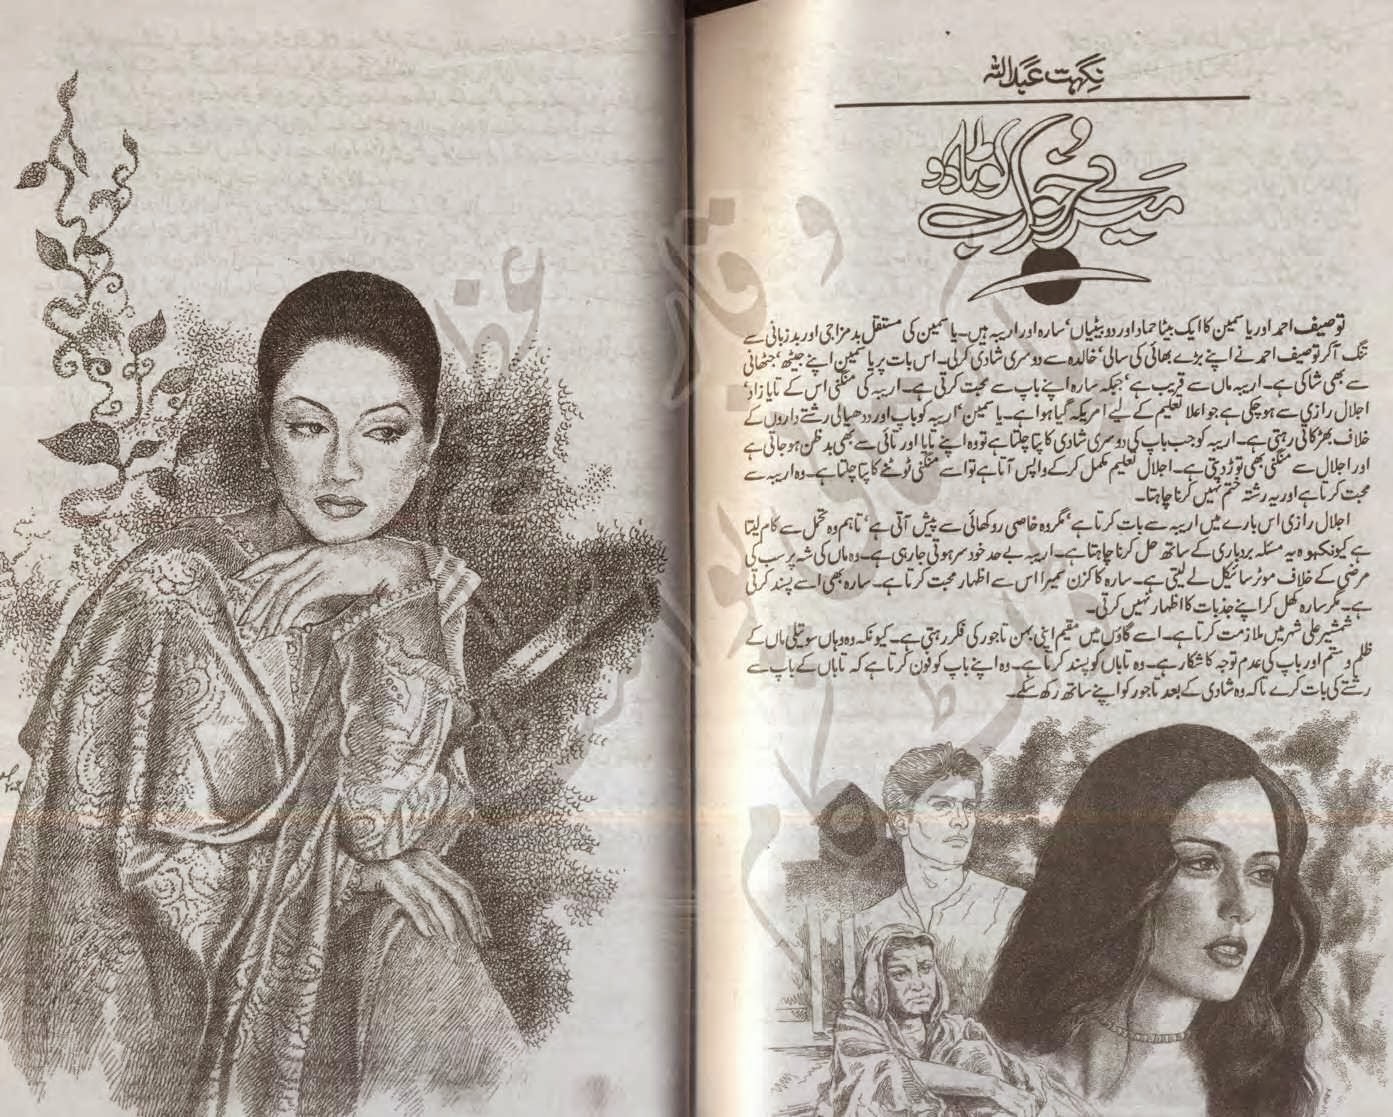 نگہت عبداللہ
میرے خواب لوٹا دو
توصیف احمد اور یاسمین کا ایک بیٹا حماد اور دو بیٹیاں‘ سارہ اور اریبہ ہیں۔ یاسمین کی مستقل بدمزاجی اور بدزبانی سے
تنگ آکر توصیف احمد نے اپنے بڑے بھائی کی سالی‘ خالدہ سے دوسری شادی کرلی۔ اس بات پر یاسمین اپنے جیٹھ‘ جٹھانی
سے بھی شاکی ہے۔ اریبہ ماں سے قریب ہے‘ جبکہ سارہ اپنے باپ سے محبت کرتی ہے۔ اریبہ کی منگنی اس کے تایا زاد‘
اجلال رازی سے ہوچکی ہے جو اعلا تعلیم کے لیے امریکہ گیا ہوا ہے۔ یاسمین‘ اریبہ کو باپ اور ددھیالی رشتے داروں کے
خلاف بھڑکاتی رہتی ہے۔ اریبہ کو جب باپ کی دوسری شادی کا پتا چلتا ہے تو وہ اپنے تایا اور تائی سے بھی بدظن ہوجاتی ہے
اور اجلال سے منگنی بھی توڑ دیتی ہے۔ اجلال تعلیم مکمل کرکے واپس آتا ہے تو اسے منگنی ٹوٹنے کا پتا چلتا ہے۔ وہ اریبہ سے
محبت کرتا ہے اور یہ رشتہ ختم نہیں کرنا چاہتا۔
اجلال رازی اس بارے میں اریبہ سے بات کرتا ہے‘ مگر وہ خاصی روکھائی سے پیش آتی ہے‘ تاہم وہ تحمل سے کام لیتا
ہے کیونکہ وہ یہ مسئلہ بردباری کے ساتھ حل کرنا چاہتا ہے۔ اریبہ بے حد خود سر ہوتی جارہی ہے۔ وہ ماں کی شہ پر سب کی
مرضی کے خلاف موٹر سائیکل لے لیتی ہے۔ سارہ کا کزن سمیر اس سے اظہار محبت کرتا ہے۔ سارہ بھی اسے پسند کرتی
ہے۔ مگر سارہ کھل کر اپنے جذبات کا اظہار نہیں کرتی۔
شمشیر علی شہر میں ملازمت کرتا ہے۔ اسے گاؤں میں مقیم اپنی بہن تاجور کی فکر رہتی ہے۔ کیونکہ وہ وہاں سوتیلی ماں کے
ظلم و ستم اور باپ کی عدم توجہ کا شکار ہے۔ وہ تاباں کو پسند کرتا ہے۔ وہ اپنے باپ کو فون کرتا ہے کہ تاباں کے باپ سے
رشتے کی بات کرے تاکہ وہ شادی کے بعد تاجور کو اپنے ساتھ رکھ سکے۔